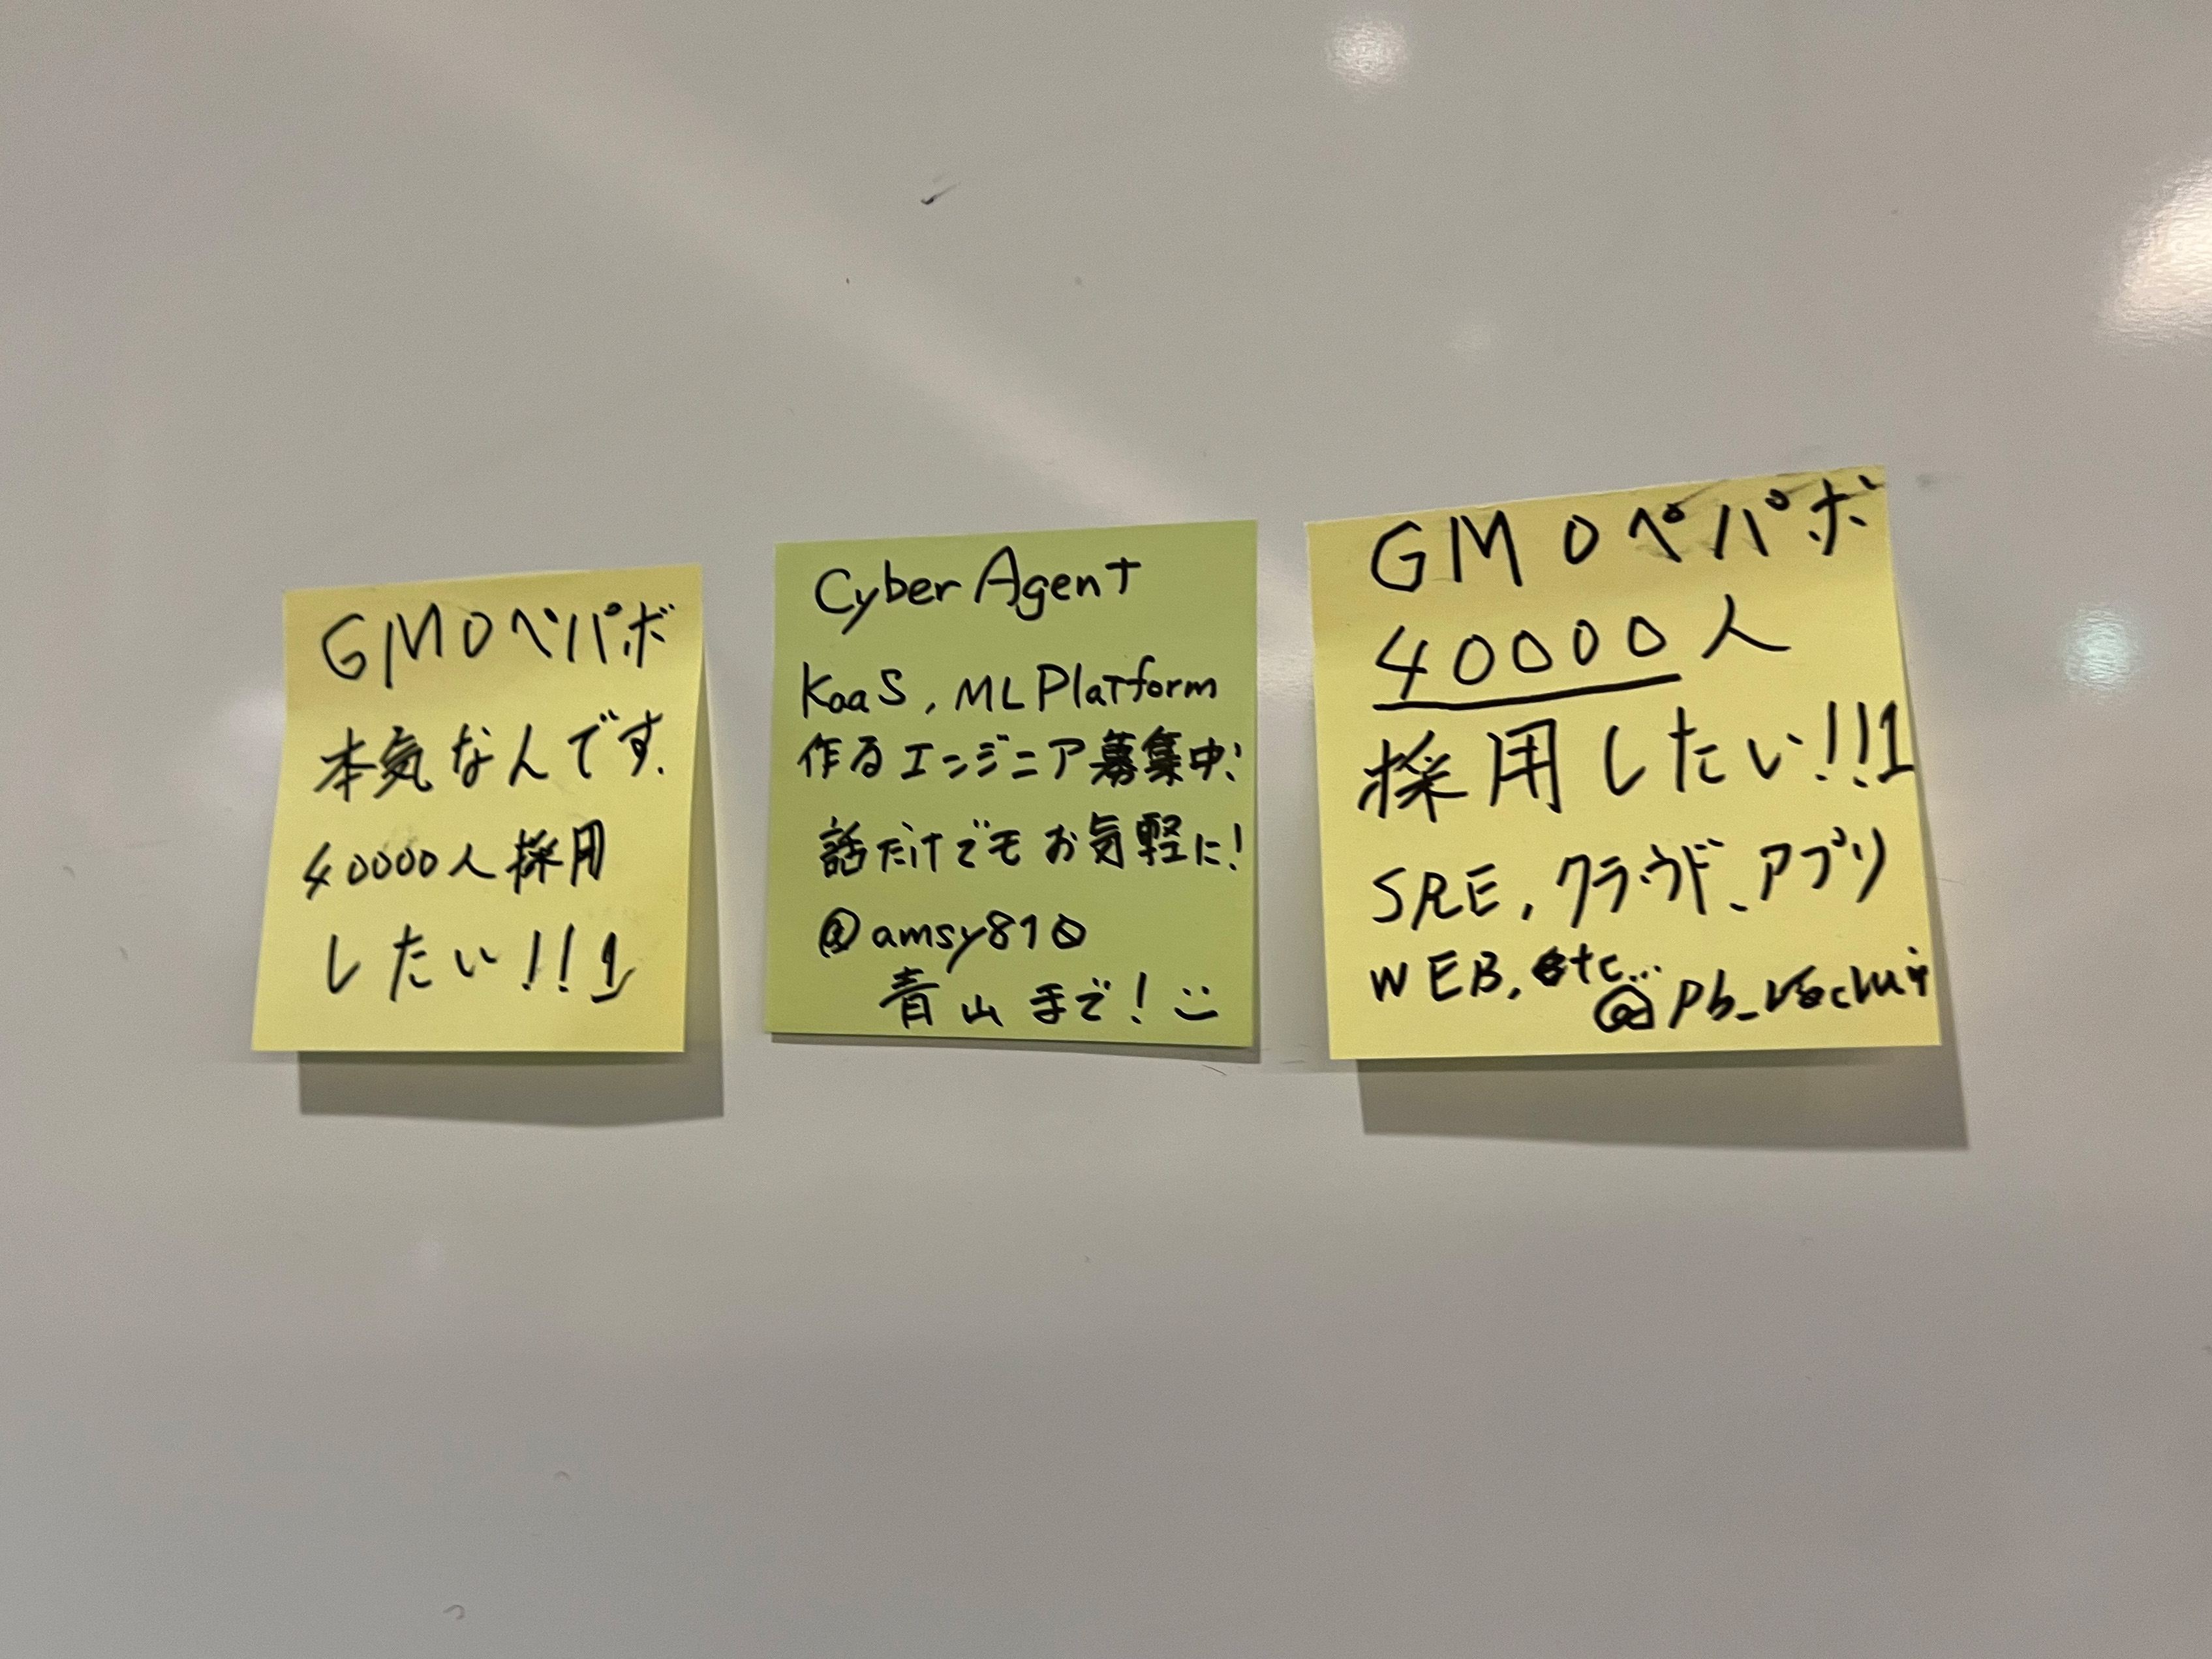 GMOペパボ
本気なんです.
40000人採用
したい!!1
CyberAgent
KaaS, ML Platform
作るエンジニア募集中!
話だけでもお気軽に!
@amsy810
青山まで! :)
GMOペパボ
40000人
採用したい!!1
SRE, クラウド、アプリ
WEB, etc...